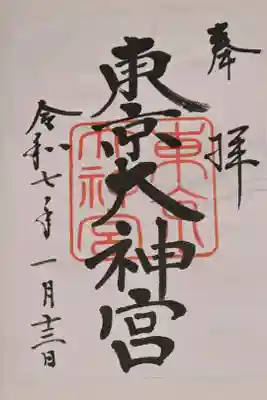 奉拝
東京大神宮
東京大神宮
令和七年一月十三日